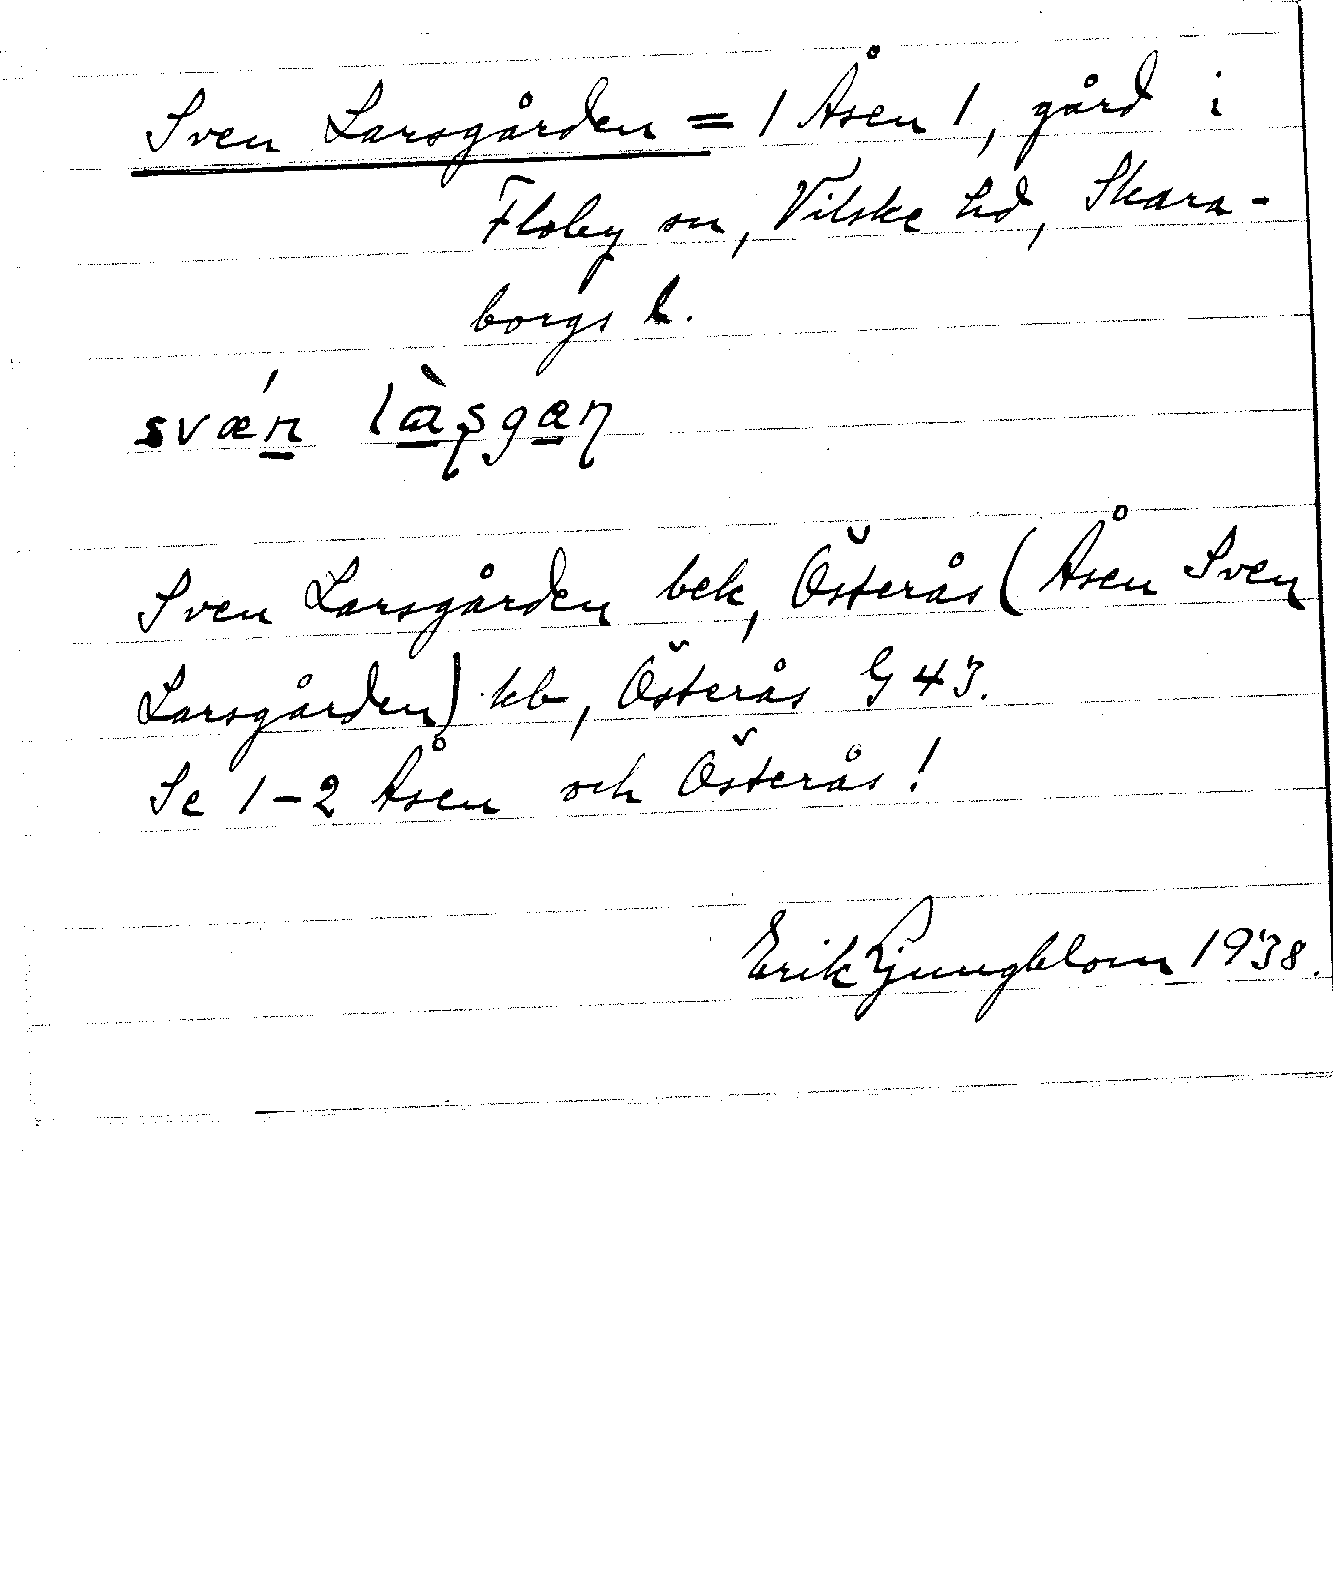 Sven Larsgården = 1 Åsen 1, gård i
Floby sn, Vilske hd, Skara-
borgs l.
svæń là̱ʂga̱ɳ
Sven Larsgården bek, Österås (Åsen Sven
Larsgården) kb, Österås G 43.
Se 1-2 Åsen och Österås!
Erik Ljungblom 1938.